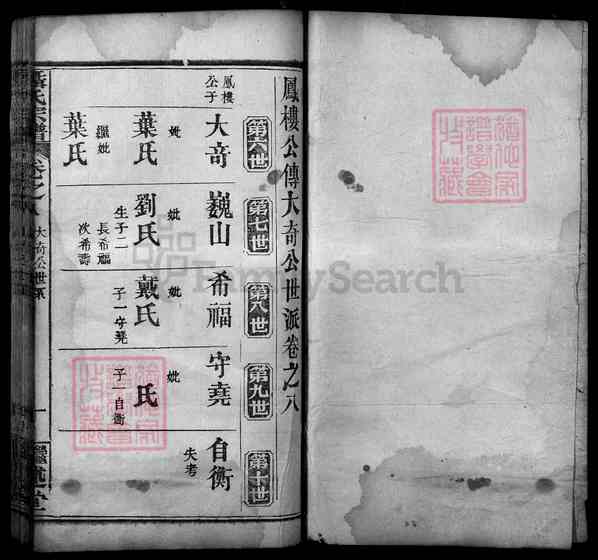 鳳樓公傳大奇公世派卷之八
第六世
第七世
第八世
第九世
第十世
鳳樓
公子
大奇
妣
葉氏
繼妣
葉氏
巍山
妣
劉氏
生子二
長希福
次希壽
希福
妣
戴氏
子一守堯
守堯
妣
氏
子一自衡
自衡
失考
氏宗譜
卷之八
大奇公世系
一
繼述堂
FamilySearch